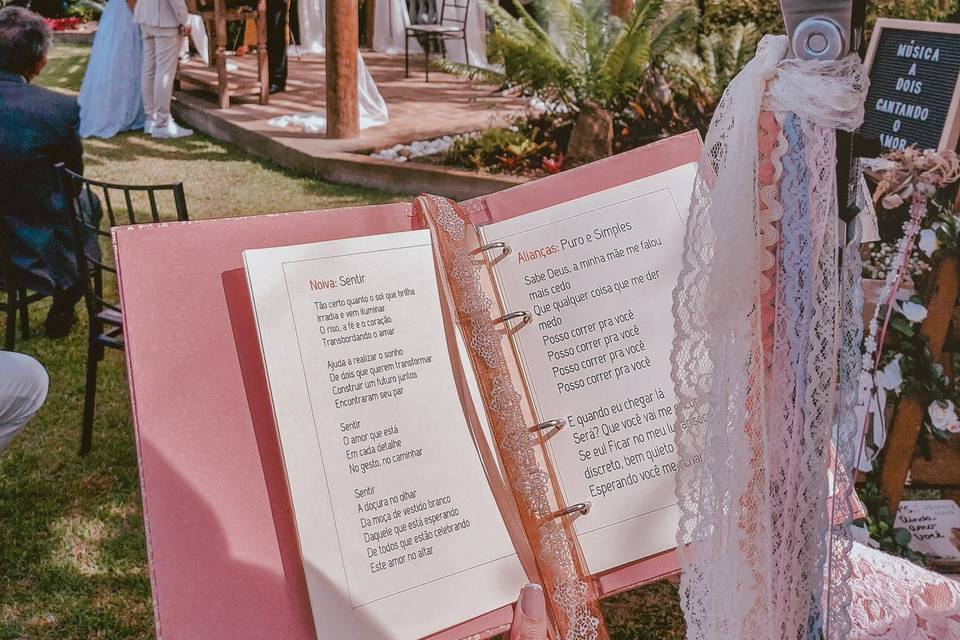 Noiva: Sentir
Tão certo quanto o sol que brilha
Irradia e vem iluminar
O riso, a fé e o coração
Transbordando o amar
Ajuda a realizar o sonho
De dois que querem transformar
Construir um futuro juntos
Encontraram seu par
Sentir
O amor que está
Em cada detalhe
No gesto, no caminhar
Sentir
A doçura no olhar
Da moça de vestido branco
Daquele que está esperando
De todos que estão celebrando
Este amor no altar
Alianças: Puro e Simples
Sabe Deus, a minha mãe me falou
mais cedo
Que qualquer coisa que me der
medo
Posso correr pra você
Posso correr pra você
Posso correr pra você
Posso correr pra você
E quando eu chegar lá
Será? Que você vai me
Se eu! Ficar no meu lu
discreto, bem quieto
Esperando você me
MÚSICA
A
DOIS
CANTANDO
O
AMOR
linda
amo
você